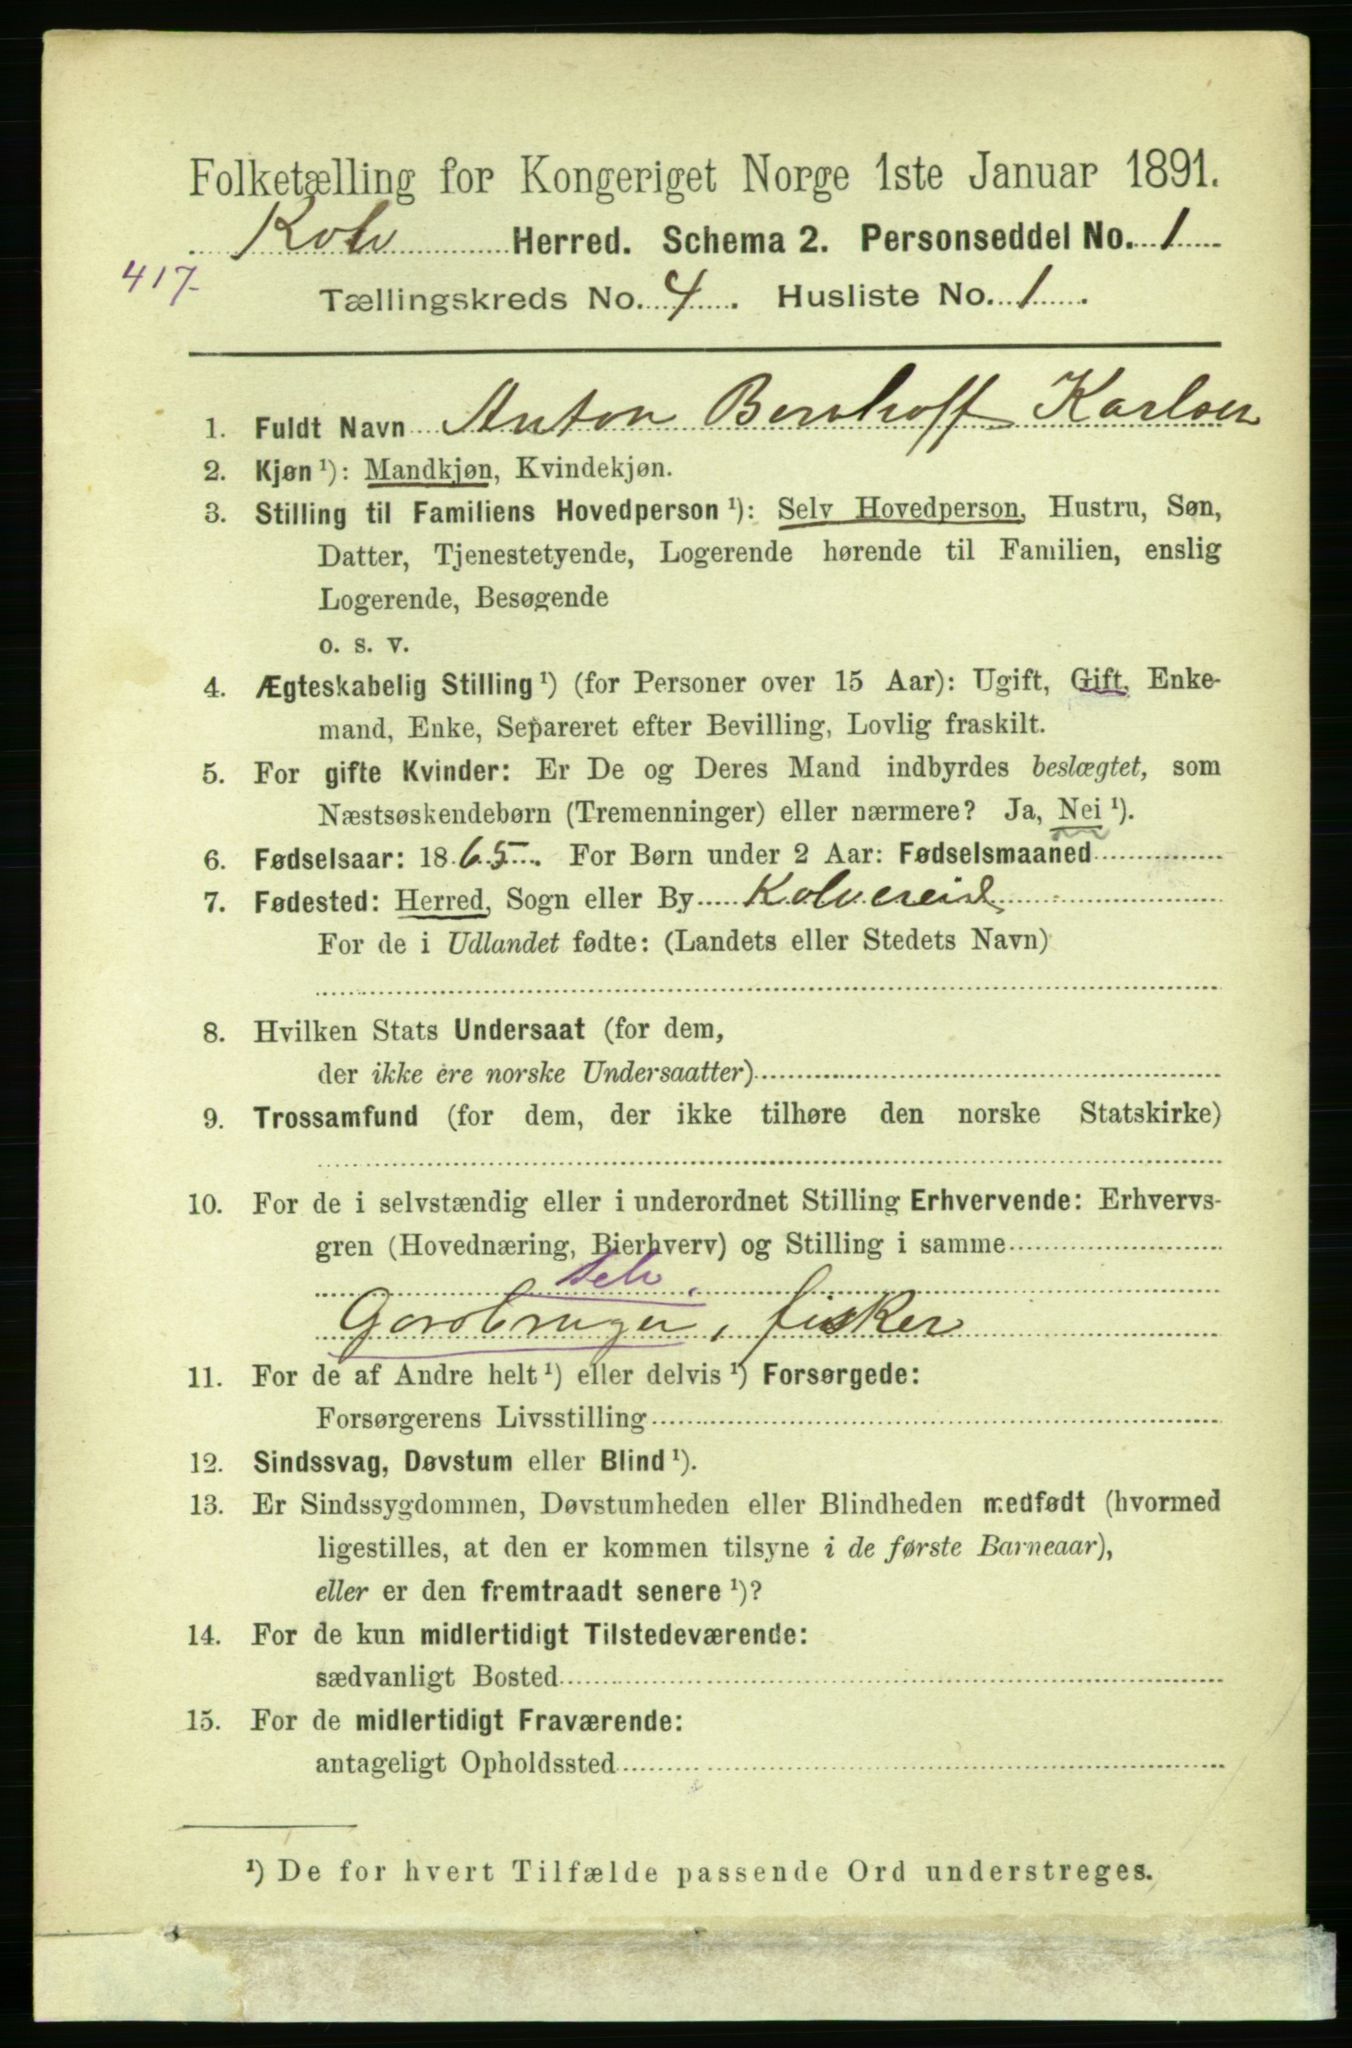 Folketælling for Kongeriget Norge 1ste Januar 1891.
Kolv Herred. Schema 2. Personseddel No. 1
417
Tællingskreds No. 4. Husliste No. 1.
1. Fuldt Navn Anton Bernhoff Karlsen
2. Kjøn ¹): Mandkjøn, Kvindekjøn.
3. Stilling til Familiens Hovedperson ¹): Selv Hovedperson, Hustru, Søn,
Datter, Tjenestetyende, Logerende hørende til Familien, enslig
Logerende, Besøgende
o. s. v.
4. Ægteskabelig Stilling ¹) (for Personer over 15 Aar): Ugift, Gift, Enke-
mand, Enke, Separeret efter Bevilling, Lovlig fraskilt.
5. For gifte Kvinder: Er De og Deres Mand indbyrdes beslægtet, som
Næstsøskendebørn (Tremenninger) eller nærmere? Ja, Nei ¹).
6. Fødselsaar: 1865. For Børn under 2 Aar: Fødselsmaaned
7. Fødested: Herred, Sogn eller By Kolvereid
For de i Udlandet fødte: (Landets eller Stedets Navn)
8. Hvilken Stats Undersaat (for dem,
der ikke ere norske Undersaatter)
9. Trossamfund (for dem, der ikke tilhøre den norske Statskirke)
10. For de i selvstændig eller i underordnet Stilling Erhvervende: Erhvervs-
gren (Hovednæring, Bierhverv) og Stilling i samme
Selv.
Gardbruger, fisker
11. For de af Andre helt ¹) eller delvis ¹) Forsørgede:
Forsørgerens Livsstilling
12. Sindssvag, Døvstum eller Blind ¹).
13. Er Sindssygdommen, Døvstumheden eller Blindheden medfødt (hvormed
ligestilles, at den er kommen tilsyne i de første Barneaar),
eller er den fremtraadt senere ¹)?
14. For de kun midlertidigt Tilstedeværende:
sædvanligt Bosted
15. For de midlertidigt Fraværende:
antageligt Opholdssted
¹) De for hvert Tilfælde passende Ord understreges.